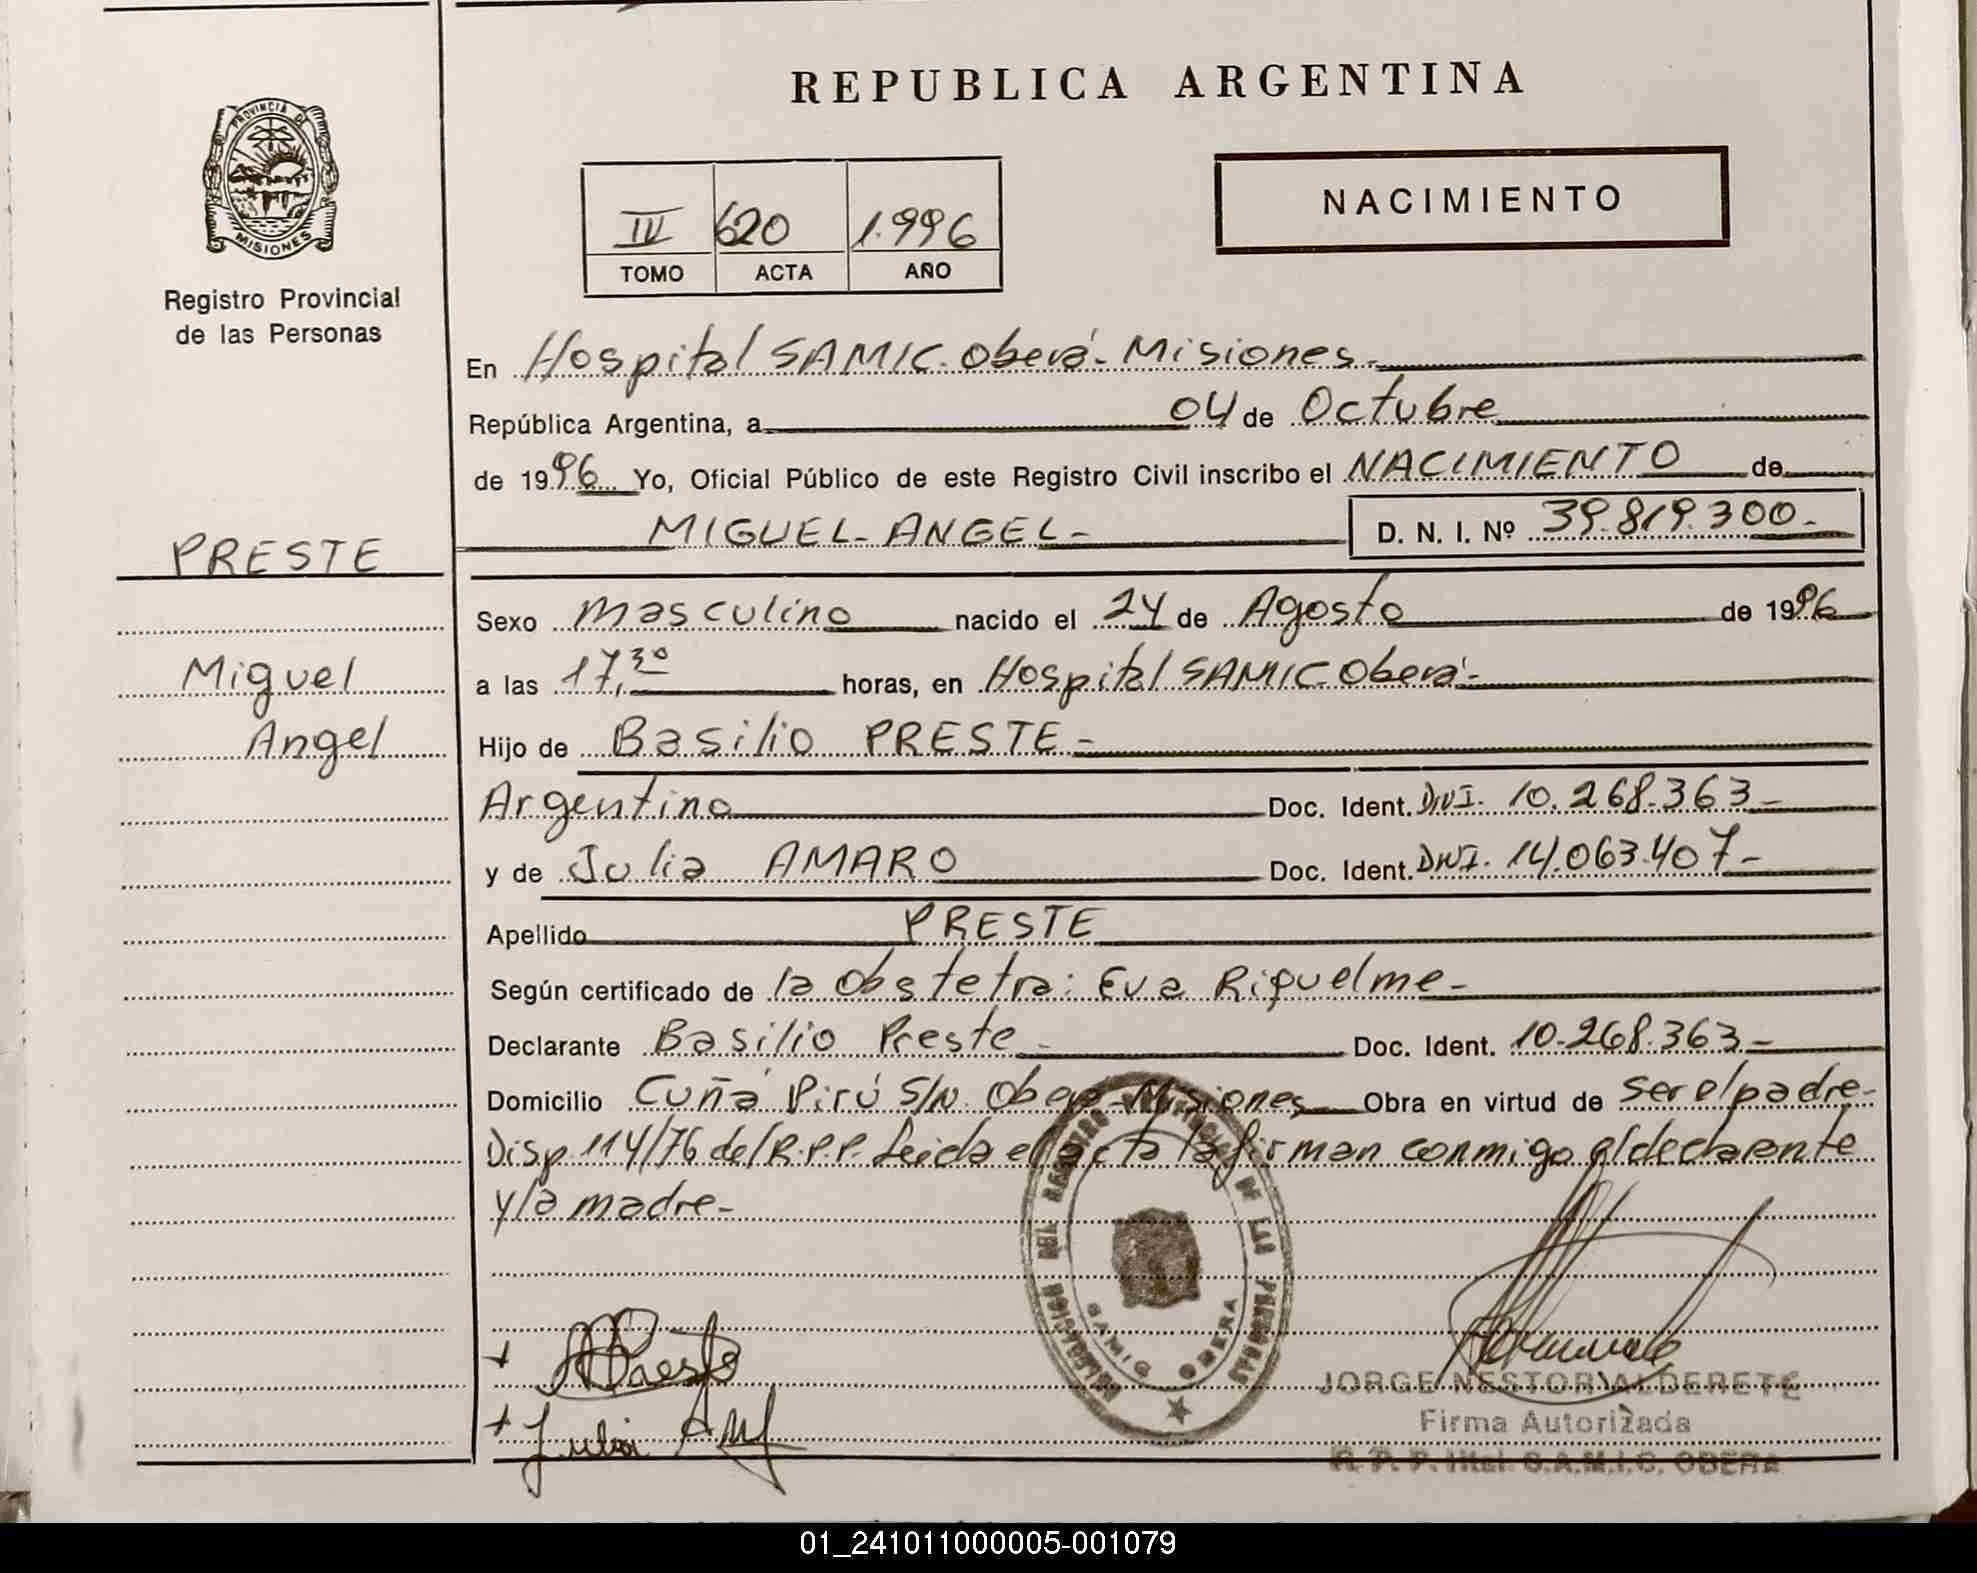 REPUBLICA ARGENTINA
PROVINCIA DE
MISIONES
Registro Provincial
de las Personas
IV 620 1.996
TOMO ACTA AÑO
NACIMIENTO
En Hospital SAMIC. Oberá - Misiones.-
República Argentina, a 04 de Octubre
de 1996 Yo, Oficial Público de este Registro Civil inscribo el NACIMIENTO de
MIGUEL - ANGEL - D. N. I. Nº 39.819.300.-
PRESTE
Miguel
Angel
Sexo masculino nacido el 24 de Agosto de 1996
a las 17,30 horas, en Hospital SAMIC Oberá.-
Hijo de Basilio PRESTE -
Argentino Doc. Ident. DNI. 10.268.363 -
y de Julia AMARO Doc. Ident. DNI. 14.063.407 -
Apellido PRESTE
Según certificado de la Obstetra: Eva Riquelme -
Declarante Basilio Preste - Doc. Ident. 10.268.363 -
Domicilio Cuñá Pirú S/N. Oberá - Misiones Obra en virtud de ser el padre -
Disp. 114/76 del R.P.P. Leida el acta la firman conmigo el declarante
y la madre -
DELEGACION DEL REGISTRO PROVINCIAL DE LAS PERSONAS
SAMIC OBERA
JORGE NESTOR ALDERETE
Firma Autorizada
R. P. P. Htal. S.A.M.I.C. OBERA
01_241011000005-001079